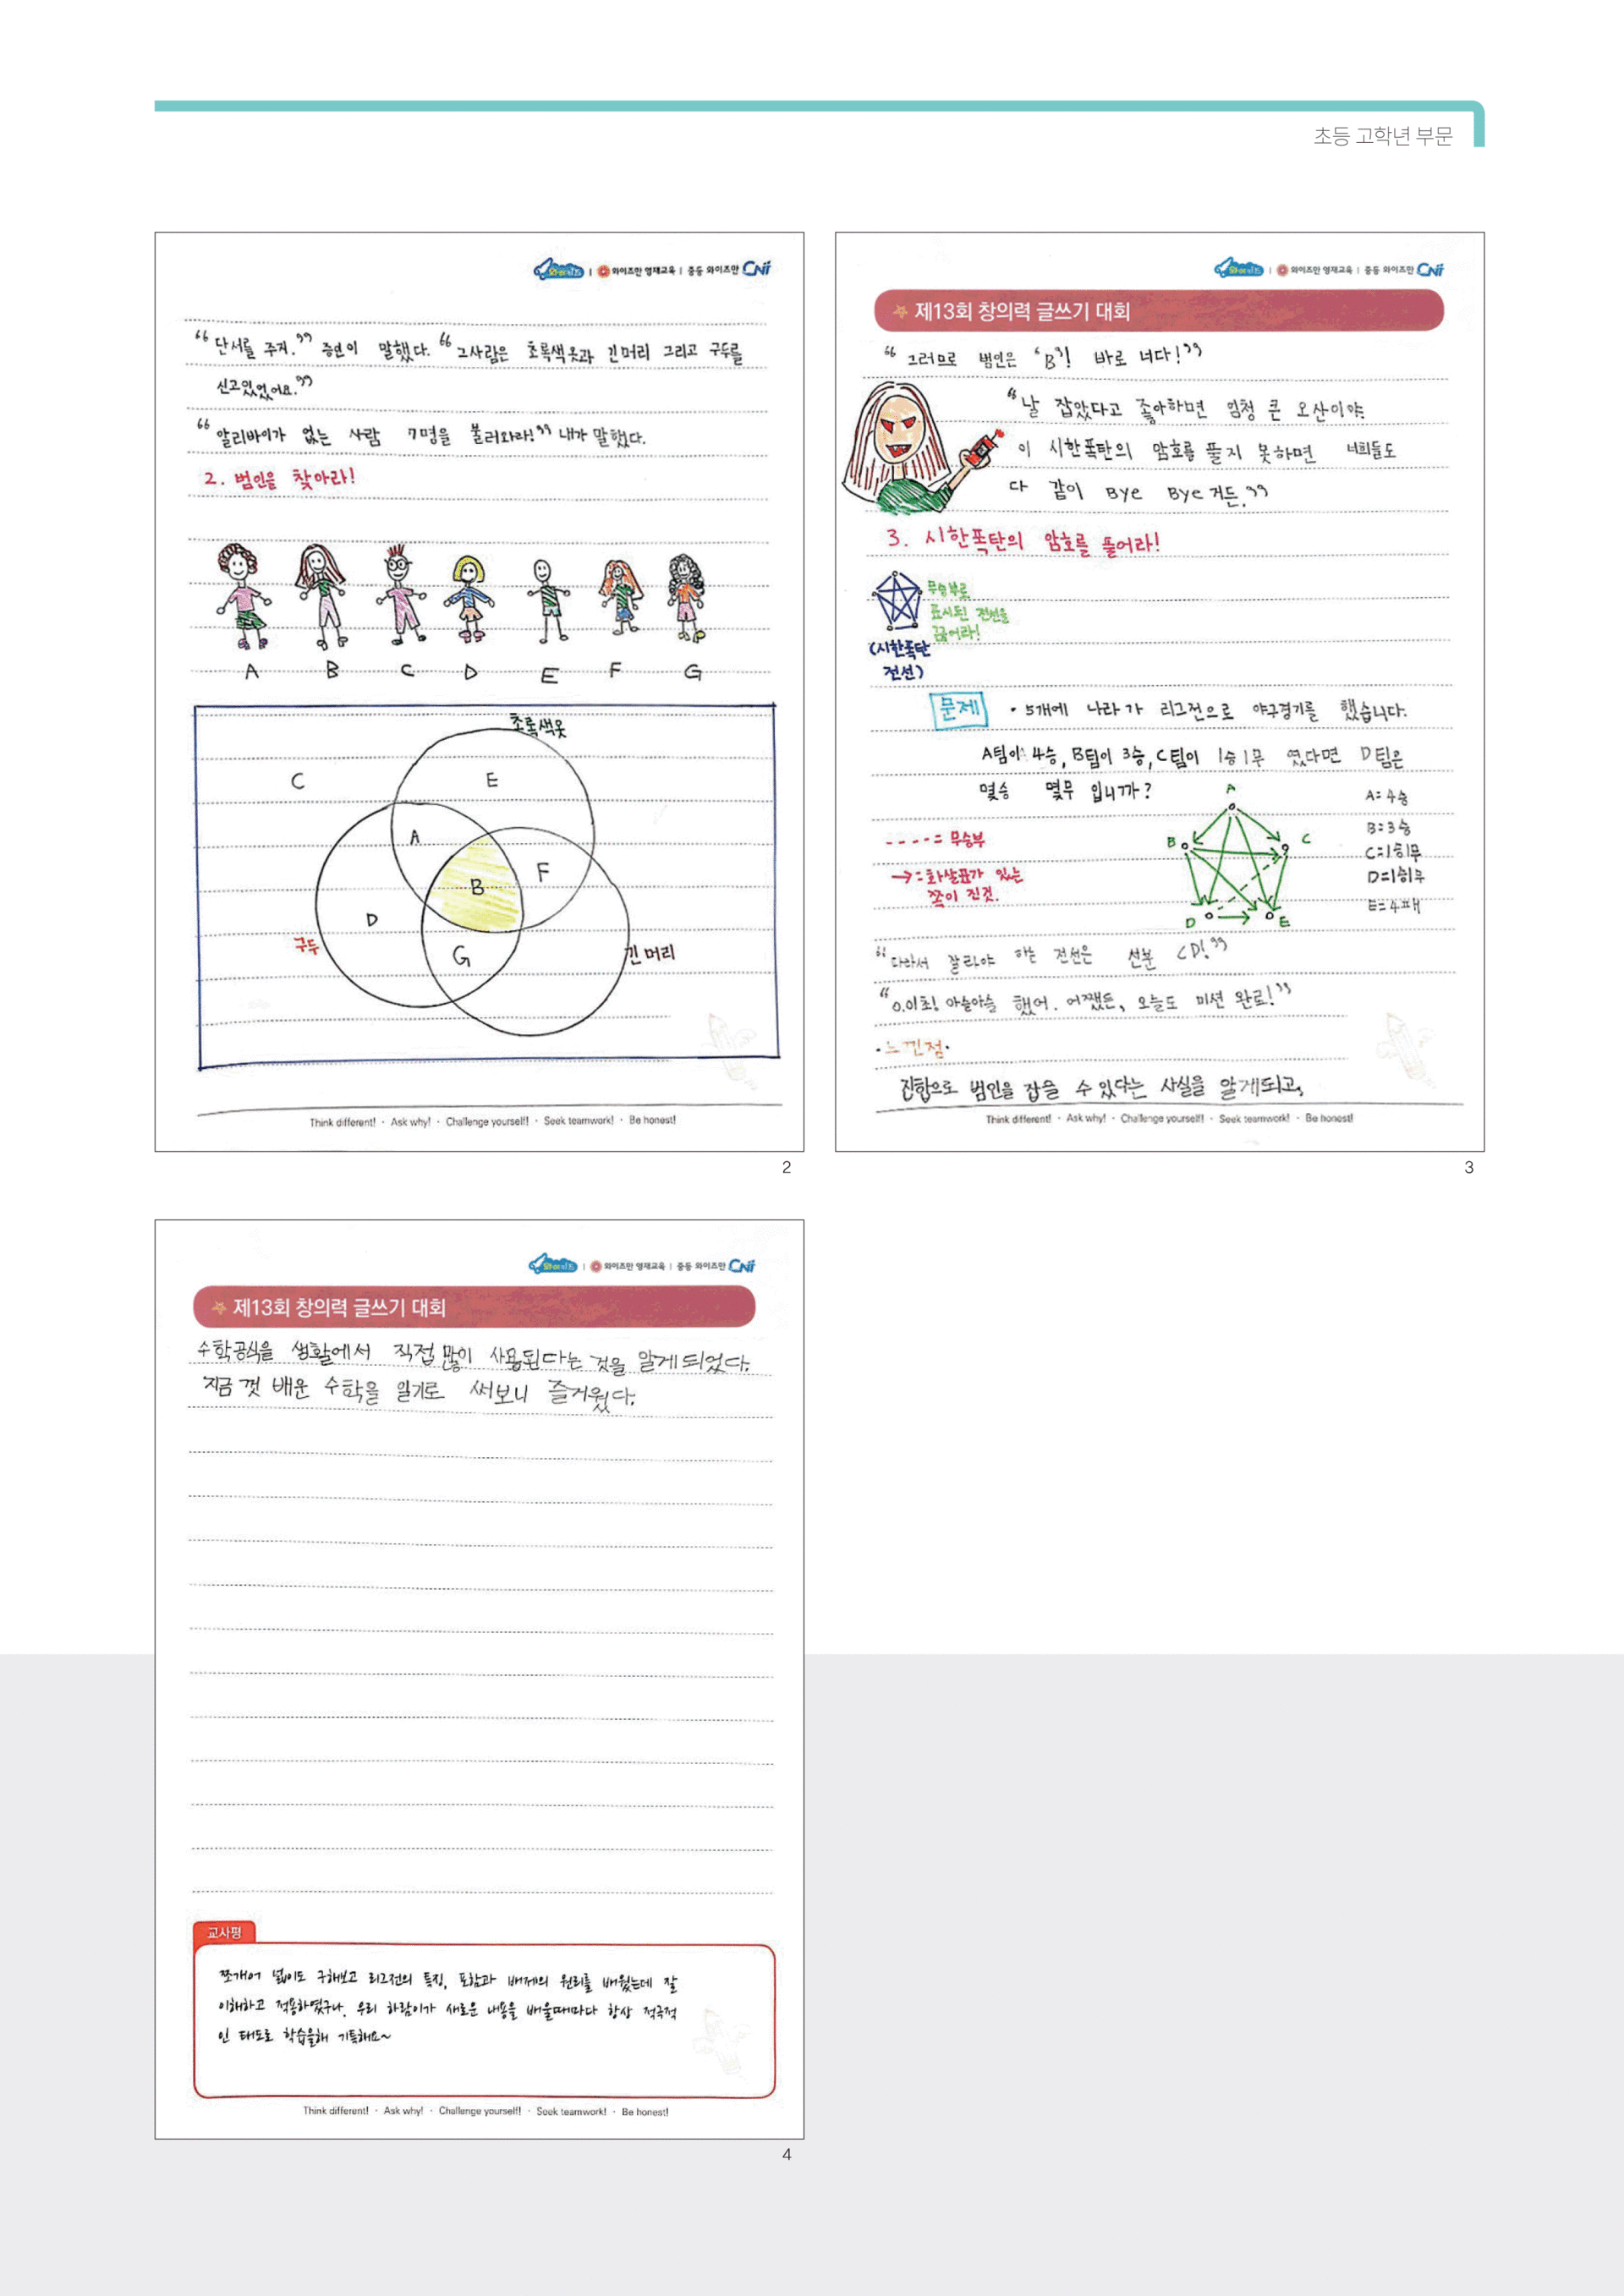 초등 고학년 부문
와이즈만 영재교육 | 중등 와이즈만 CNI
“단서를 주지.” 증인이 말했다. “그사람은 초록색옷과 긴머리 그리고 구두를
신고있었어요.”
“알리바이가 없는 사람 7명을 불러와라!” 내가 말했다.
2. 범인을 찾아라!
A B C D E F G
초록색옷
C E
A
B F
D
구두 G 긴머리
Think different! · Ask why! · Challenge yourself! · Seek teamwork! · Be honest!
2
와이즈만 영재교육 | 중등 와이즈만 CNI
제13회 창의력 글쓰기 대회
“그러므로 범인은 ‘B’! 바로 너다!”
“날 잡았다고 좋아하면 엄청 큰 오산이야.
이 시한폭탄의 암호를 풀지 못하면 너희들도
다 같이 Bye Bye 거든.”
3. 시한폭탄의 암호를 풀어라!
무승부로
표시된 전선을
끊어라!
(시한폭탄
전선)
문제 · 5개에 나라가 리그전으로 야구경기를 했습니다.
A팀이 4승, B팀이 3승, C팀이 1승1무 였다면 D팀은
몇승 몇무 입니까?
----= 무승부
→=화살표가 있는
쪽이 진것.
A
B C
D E
A=4승
B=3승
C=1승1무
D=1승1무
E=4패
“따라서 잘라야 하는 전선은 선분 CD!”
“0.01초! 아슬아슬 했어. 어쨌든, 오늘도 미션 완료!”
·느낀점·
집합으로 범인을 잡을 수 있다는 사실을 알게되고,
Think different! · Ask why! · Challenge yourself! · Seek teamwork! · Be honest!
3
와이즈만 영재교육 | 중등 와이즈만 CNI
제13회 창의력 글쓰기 대회
수학공식을 생활에서 직접 많이 사용된다는 것을 알게 되었다.
지금 껏 배운 수학을 일기로 써보니 즐거웠다.
교사평
쪼개어 넓이도 구해보고 리그전의 특징, 포함과 배제의 원리를 배웠는데 잘
이해하고 적용하였구나. 우리 하람이가 새로운 내용을 배울때마다 항상 적극적
인 태도로 학습을해 기특해요~
Think different! · Ask why! · Challenge yourself! · Seek teamwork! · Be honest!
4